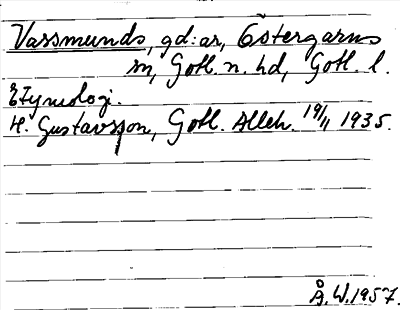 Vassmunds, gd:ar, Östergarns
sn, Gotl. n. hd, Gotl. l.
Etymologi.
H. Gustavsson, Gotl. Alleh. 19/11 1935.
Å. W. 1957.